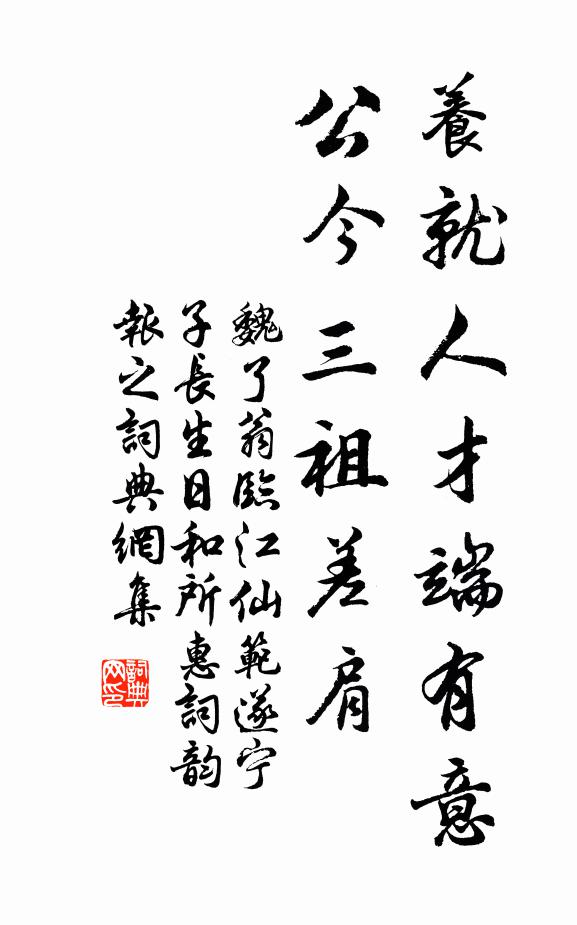 養就人才端有意
公今三祖差肩
魏了翁臨江仙範遂宁
子長生日和所惠詞韵
報之詞典網集
詞典
网印